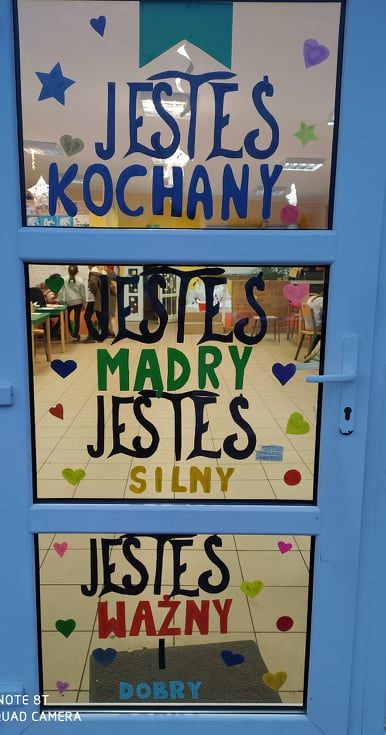 JESTEŚ
KOCHANY
JESTEŚ
MADRY
JESTEŚ
SILNY
JESTEŚ
WAŻNY
I
DOBRY
NOTE 8T
QUAD CAMERA